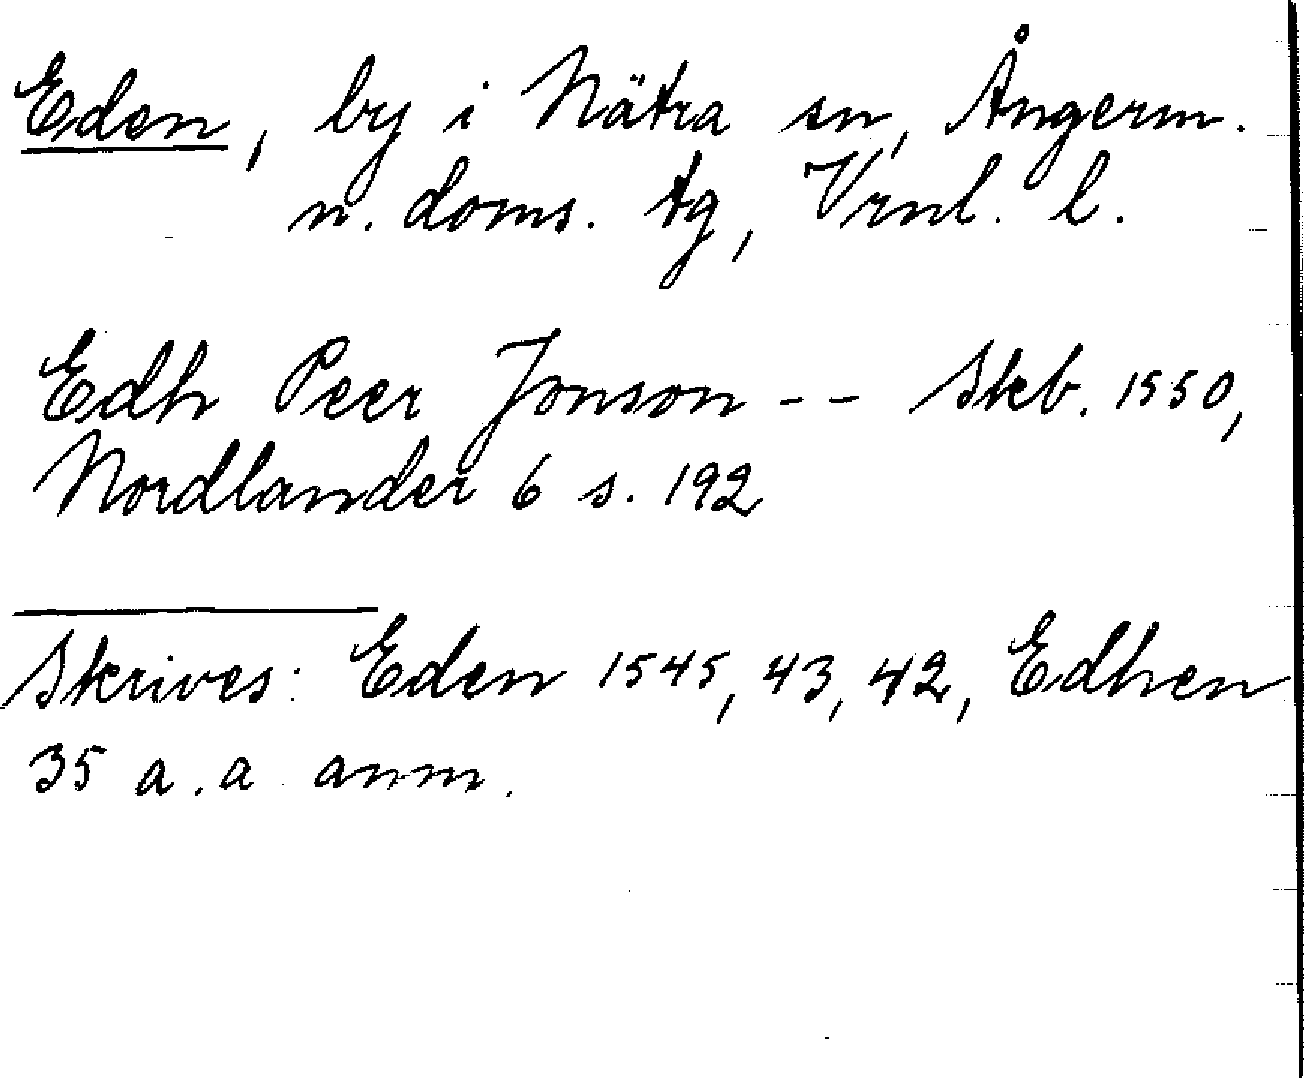 Eden, by i Nätra sn, Ångerm.
n. doms. tg, Vrnl. l.
Edh Peer Jonson -- Skb. 1550,
Nordlander 6 s. 192
Skrives: Eden 1545, 43, 42, Edhen
35 a.a anm.